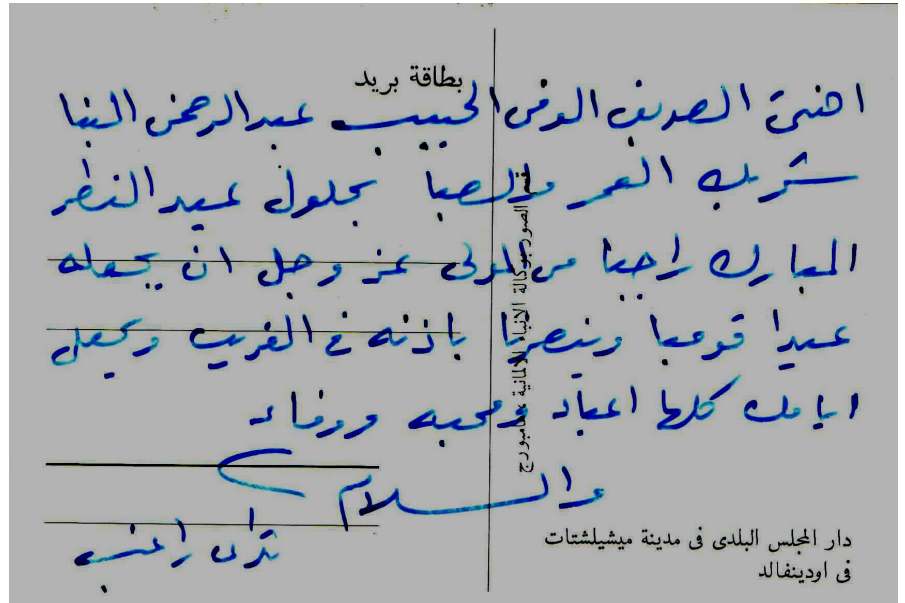 بطاقة بريد
اهنئ الصديق الوفي الحبيب عبدالرحمن البنا
شريك العمر والصبا بحلول عيد الفطر
المبارك راجيا من المولى عز وجل ان يجعله
عيدا قوميا وينصرنا باذنه في القريب ويجعل
ايامك كلها اعياد ومحبه ووفاء
والسلام
راغب
قسم الصور بوكالة الانباء الالمانية هامبورج
دار المجلس البلدى فى مدينة ميشيلشتات
فى اودينفالد